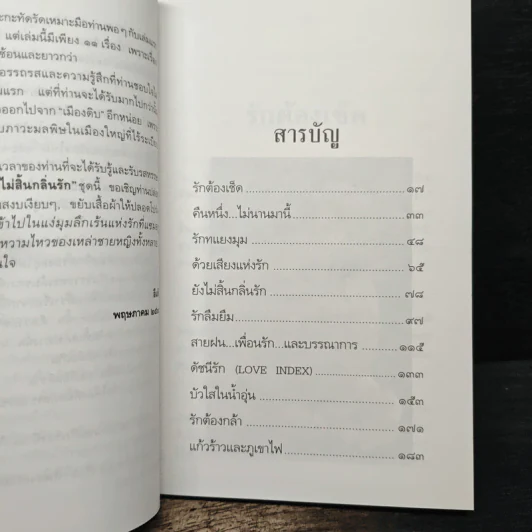 ะกะทัดรัดเหมาะมือท่านพอๆกับเล่มแรก
แต่เล่มนี้มีเพียง ๑๑ เรื่อง เพราะเรื่อง
ซ้อนและยาวกว่า
อรรถรสและความรู้สึกที่ท่านชอบใจใน
มแรก แต่ที่ท่านจะได้รับมากไปกว่านั้น
ออกไปจาก "เมืองดิบ" อีกหน่อย เพราะ
ภาวะมลพิษในเมืองใหญ่ที่ไร้ระเบียบ
เวลาของท่านที่จะได้รับรู้และรับรส
ไม่สิ้นกลิ่นรัก" ชุดนี้ ขอเชิญท่าน
สงบเงียบๆ ขยับเสื้อผ้าให้ปลอดโปร่ง
ข้าไปในแง่มุมลึกเร้นแห่งรักที่
หวามไหวของเหล่าชายหญิงทั้งหลาย
นใจ
พฤษภาคม
สารบัญ
รักต้องเช็ด ๑๗
คืนหนึ่ง...ไม่นานมานี้ ๓๓
รักทแยงมุม ๔๘
ด้วยเสียงแห่งรัก ๖๕
ยังไม่สิ้นกลิ่นรัก ๗๘
รักลืมยิ้ม ๙๗
สายฝน...เพื่อนรัก...และบรรณาการ ๑๑๕
ดัชนีรัก (LOVE INDEX) ๑๓๓
บัวใสในน้ำอุ่น ๑๕๓
รักต้องกล้า ๑๗๑
แก้วร้าวและภูเขาไฟ ๑๘๓